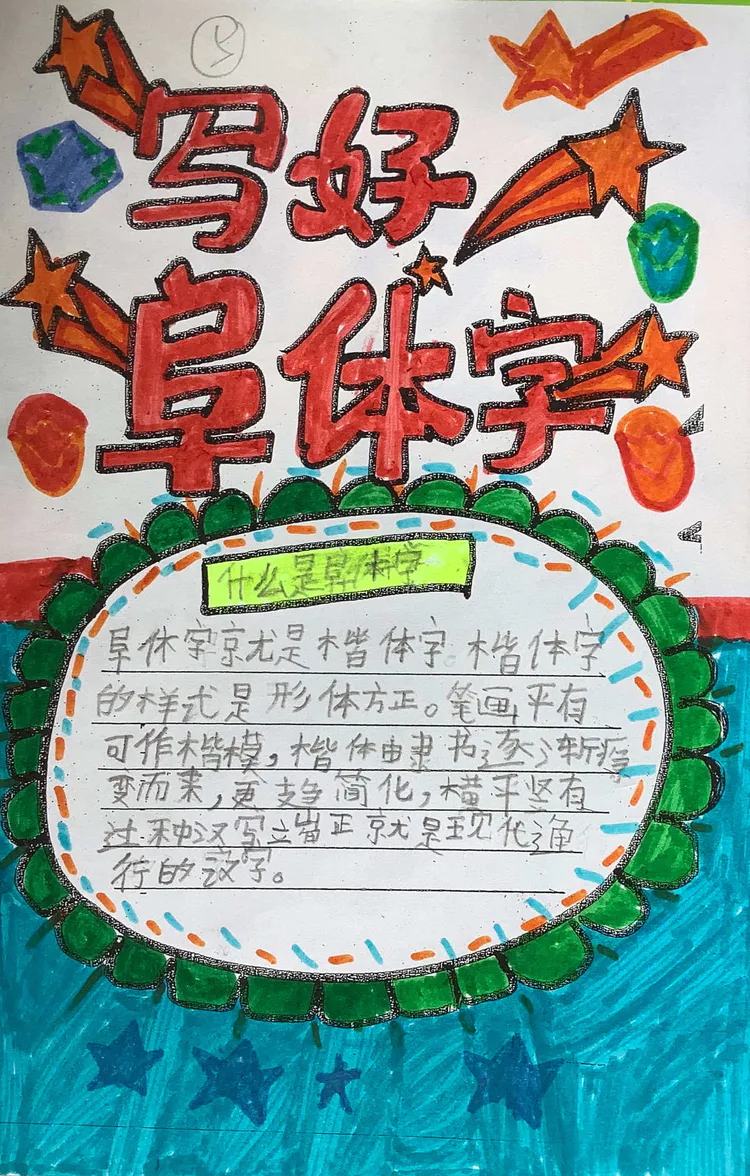 写好
阜体字
什么是阜体字
阜休字京尤是楷体字。楷体字
的样式是形体方正。笔画平有
可作楷模，楷体由隶书逐渐
变而来，更趋简化，横平竖有
过种汉写立岩正就是现代通
行的汉字。